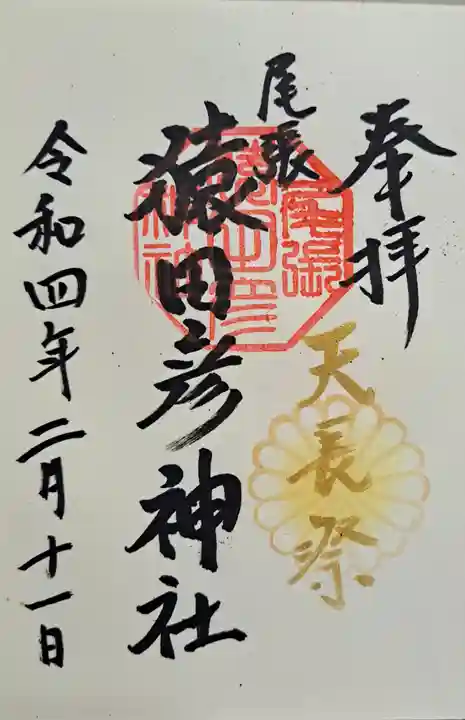 奉拝
天長祭
尾張
猿田彦神社
令和四年二月十一日